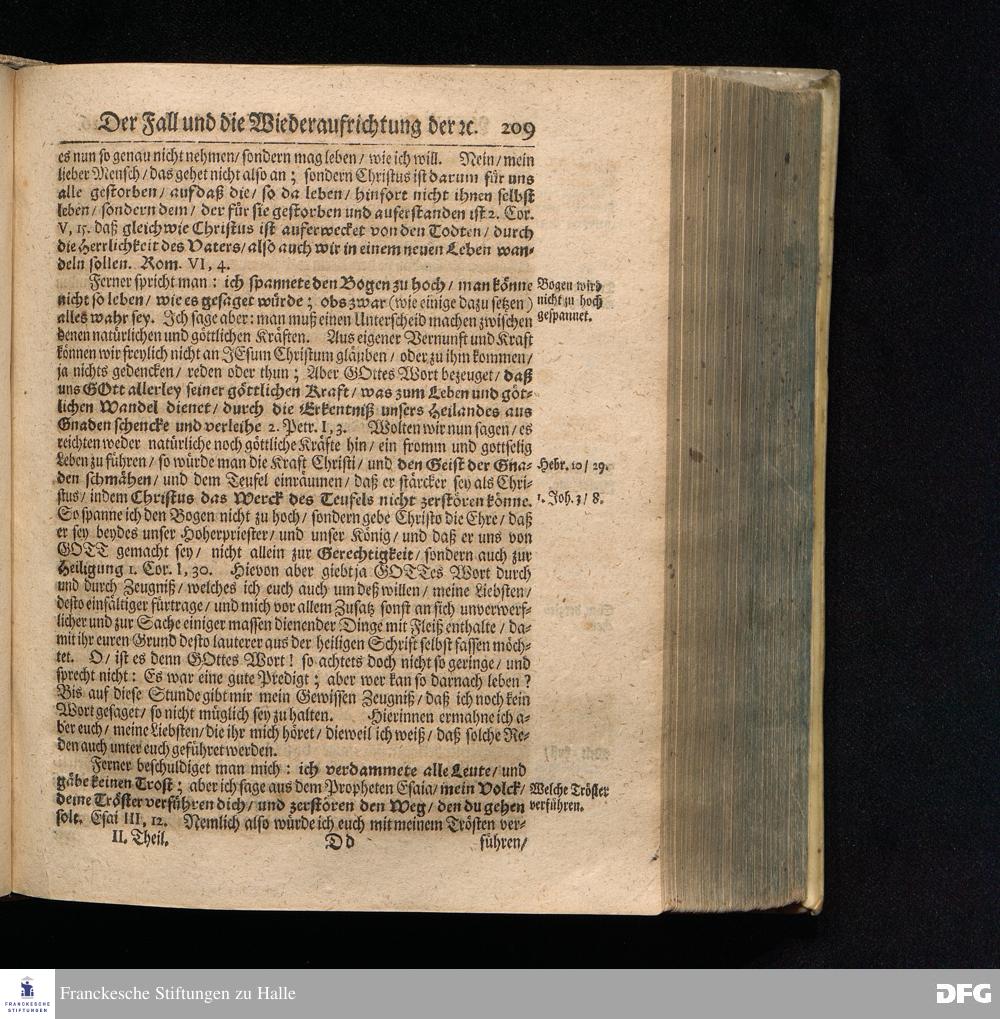 Der Fall und die Wiederaufrichtung der ꝛc. 209
es nun so genau nicht nehmen/ sondern mag leben/ wie ich will. Nein/ mein
lieber Mensch/ das gehet nicht also an; sondern Christus ist darum für uns
alle gestorben/ auf daß die/ so da leben/ hinfort nicht ihnen selbst
leben/ sondern dem/ der für sie gestorben und auferstanden ist 2. Cor.
V, 15. daß gleich wie Christus ist auferwecket von den Todten/ durch
die Herrlichkeit des Vaters/ also auch wir in einem neuen Leben wan-
deln sollen. Rom. VI, 4.
Ferner spricht man: ich spannete den Bogen zu hoch/ man könne
nicht so leben/ wie es gesaget würde; obs zwar (wie einige dazu setzen)
alles wahr sey. Ich sage aber: man muß einen Unterscheid machen zwischen
denen natürlichen und göttlichen Kräften. Aus eigener Vernunft und Kraft
können wir freylich nicht an JEsum Christum gläuben/ oder zu ihm kommen/
ja nichts gedencken/ reden oder thun; Aber GOttes Wort bezeuget/ daß
uns GOtt allerley seiner göttlichen Kraft/ was zum Leben und göt-
lichen Wandel dienet/ durch die Erkentniß unsers Heilandes aus
Gnaden schencke und verleihe 2. Petr. I, 3. Wolten wir nun sagen/ es
reichten weder natürliche noch göttliche Kräfte hin/ ein fromm und gottselig
Leben zu führen/ so würde man die Kraft Christi/ und den Geist der Gna-
den schmähen/ und dem Teufel einräumen/ daß er stärcker sey als Chri-
stus/ indem Christus das Werck des Teufels nicht zerstören könne.
So spanne ich den Bogen nicht zu hoch/ sondern gebe Christo die Ehre/ daß
er sey beydes unser Hoherpriester/ und unser König/ und daß er uns von
GOTT gemacht sey/ nicht allein zur Gerechtigkeit/ sondern auch zur
Heiligung 1. Cor. I, 30. Hievon aber giebt ja GOTTes Wort durch
und durch Zeugniß/ welches ich euch auch um deß willen/ meine Liebsten/
desto einfältiger fürtrage/ und mich vor allem Zusatz sonst an sich unverwerf-
licher und zur Sache einiger massen dienender Dinge mit Fleiß enthalte/ da-
mit ihr euren Grund desto lauterer aus der heiligen Schrift selbst fassen möch-
tet. O/ ist es denn GOttes Wort! so achtets doch nicht so geringe/ und
sprecht nicht: Es war eine gute Predigt; aber wer kan so darnach leben?
Bis auf diese Stunde gibt mir mein Gewissen Zeugniß/ daß ich noch kein
Wort gesaget/ so nicht müglich sey zu halten. Hierinnen ermahne ich a-
ber euch/ meine Liebsten/ die ihr mich höret/ dieweil ich weiß/ daß solche Re-
den auch unter euch geführet werden.
Ferner beschuldiget man mich: ich verdammete alle Leute/ und
gäbe keinen Trost; aber ich sage aus dem Propheten Esaia/ mein Volck/
deine Tröster verführen dich/ und zerstören den Weg/ den du gehen
solt. Esai III, 12. Nemlich also würde ich euch mit meinem Trösten ver-
II. Theil. D d führen/
Bogen wird
nicht zu hoch
gespannet.
Hebr. 10/ 29.
1. Joh. 3/ 8.
Welche Tröster
verführen.
FRANCKESCHE
STIFTUNGEN
Franckesche Stiftungen zu Halle
DFG